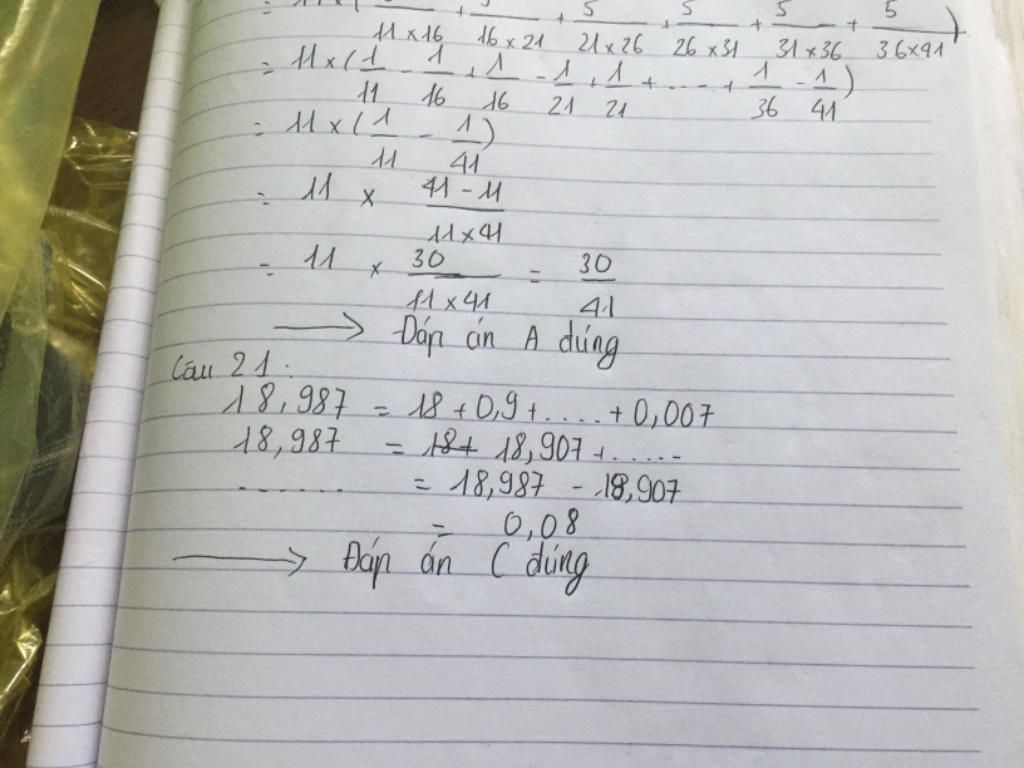 = 11 × ( 5/11×16 + 5/16×21 + 5/21×26 + 5/26×31 + 5/31×36 + 5/36×41 )
= 11 × ( 1/11 - 1/16 + 1/16 - 1/21 + 1/21 + ..... + 1/36 - 1/41 )
= 11 × ( 1/11 - 1/41 )
= 11 × 41 - 11/11×41
= 11 × 30/11×41 = 30/41
→ Đáp án A dúng
Câu 21:
18,987 = 18 + 0,9 + ..... + 0,007
18,987 = 18+ 18,907 + ......
....... = 18,987 - 18,907
= 0,08
→ Đáp án C dúng